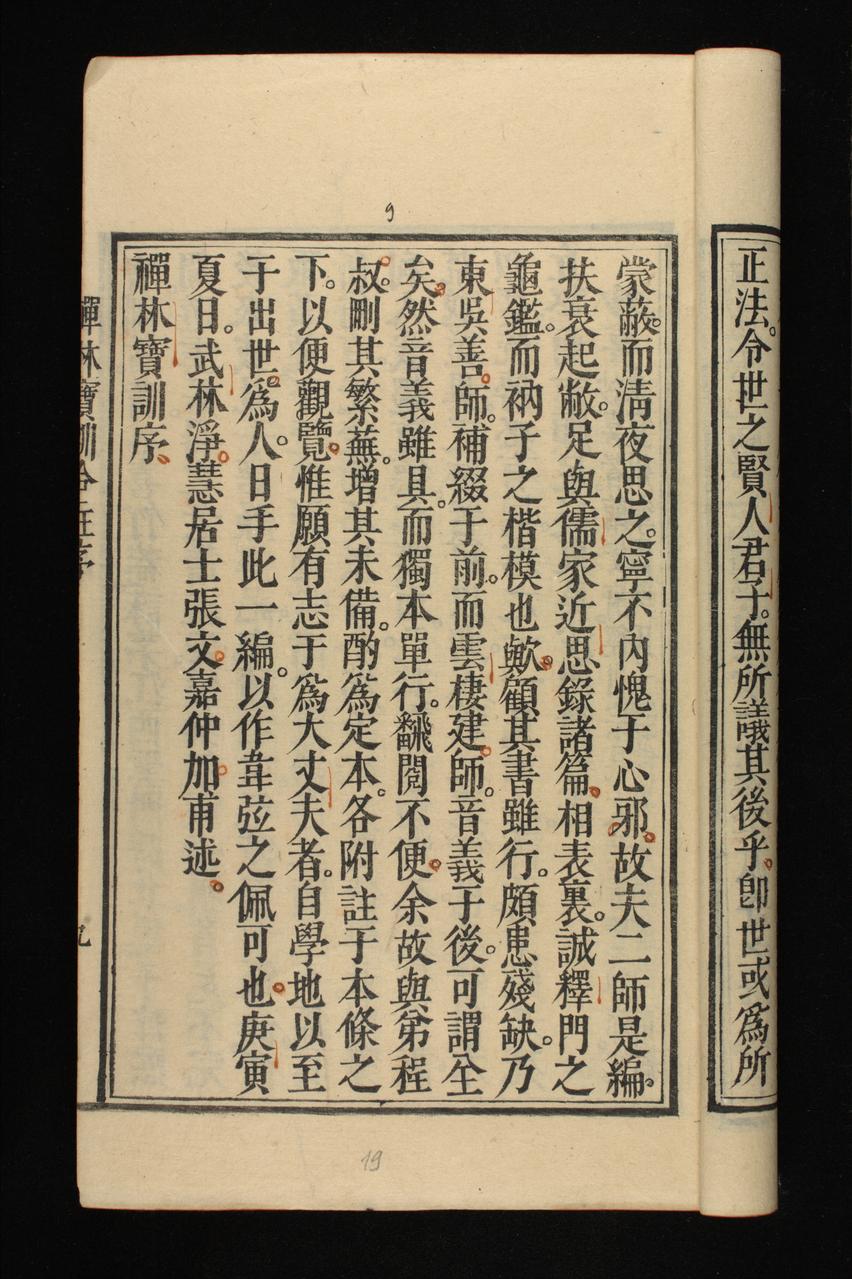 正法。令世之賢人君子。無所議其後乎。卽世或爲所
9
蒙蔽。而淸夜思之。寧不內愧于心邪。故夫二師是編。
扶衰起敝。足與儒家近思錄諸篇。相表裏。誠釋門之
龜鑑。而衲子之楷模也歟。顧其書雖行。頗患殘缺。乃
東吳善師。補綴于前。而雲棲建師。音義于後。可謂全
矣。然音義雖具。而獨本單行。翻閱不便。余故與弟程
叔。刪其繁蕪。增其未備。酌爲定本。各附註于本條之
下。以便觀覽。惟願有志于爲大丈夫者。自學地以至
于出世。爲人。日手此一編。以作韋弦之佩可也。庚寅
夏日。武林淨慧居士張文嘉仲加甫述。
禪林寶訓序
禪林寶訓合註序
九
19